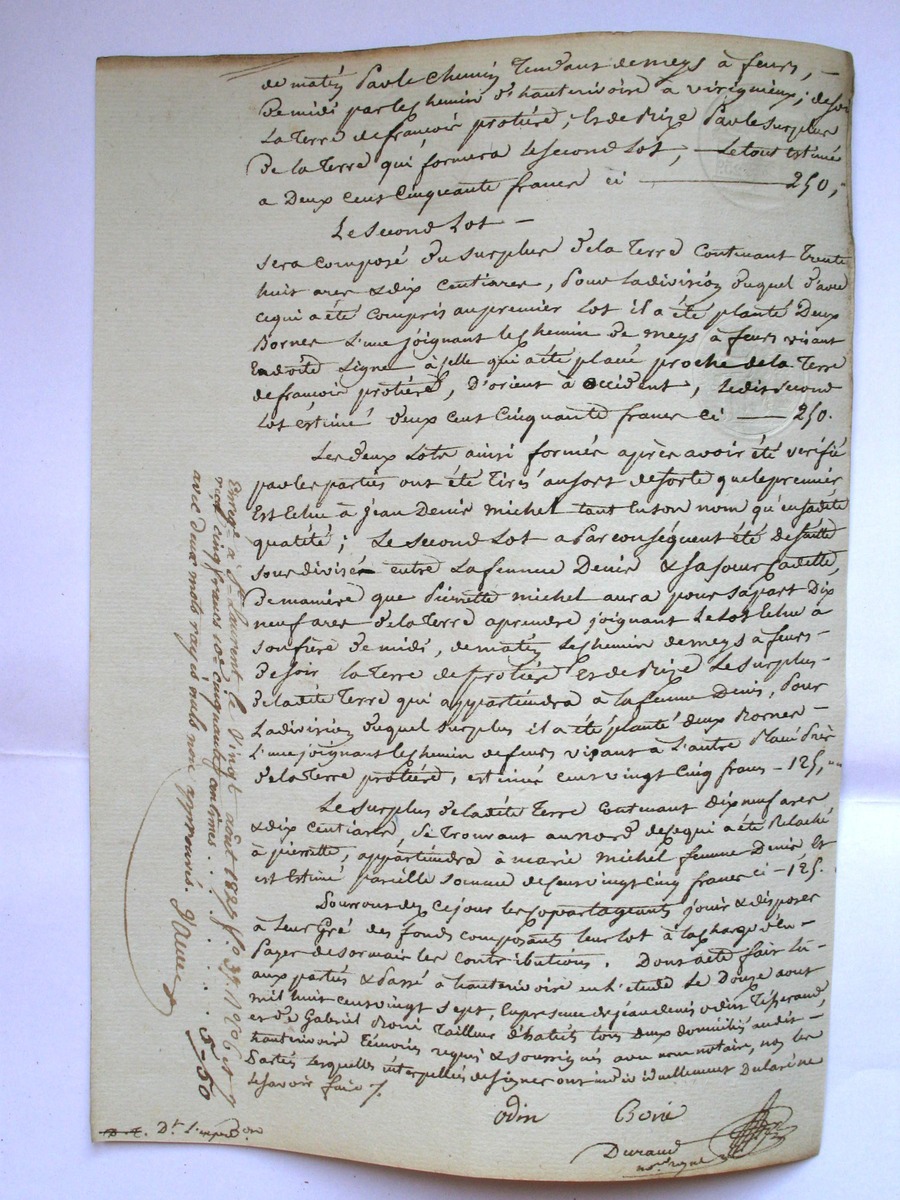 de matin par le chemin tendant de meys à feurs, —
de midi par le chemin d'hauterivoire à virignieux; de soir
la terre de françois protière, et de bize par le surplus
de la terre qui formera le second lot, — le tout estimé
a deux cent cinquante francs ci — 250,-
Le second Lot —
sera composé du surplus de la terre contenant trente
huit ares & dix centiares, pour la division duquel d'avec
ce qui a été compris au premier lot il a été planté deux
bornes l'une joignant le chemin de meys à feurs visant
en droite ligne à celle qui a été placée proche de la terre
de françois protière, d'orient à occident, le dit second
lot estimé deux cent cinquante francs ci — 250.
Les deux lots ainsi formés après avoir été vérifié
par les parties ont été tirés au sort de sorte que le premier
est échu à jean Denis michel tant en son nom qu'en sadite
qualité; le second lot a par conséquent été de suite
sous divisé entre la femme Denis & sa sœur cadette,
de manière que pierrette michel aura pour sa part dix
neuf ares de la terre a prendre joignant le lot échu à
son frère de midi, de matin le chemin de meys à feurs -
de soir la terre de protière et de bize le surplus -
de la dite terre qui appartiendra à la femme Denis, pour
la division duquel surplus il a été planté deux bornes -
l'une joignant le chemin de feurs visant à l'autre placée près
de la terre protière, estimé cent vingt cinq francs — 125,
Le surplus de la dite terre contenant dix neuf ares
& dix centiares, se trouvant au nord de ce qui a été relaché
à pierrette, appartiendra à marie michel femme Denis et
est estimé pareille somme de cent vingt cinq francs ci — 125.
Pourront dès ce jour les copartageants jouir & disposer
à leur gré des fonds composants leur lot à la charge d'en -
payer desormais les contributions. Dont acte fait lu -
aux parties & passé à hauterivoire en l'étude le douze aout
mil huit cent vingt sept, en presence de jean denis odin tisserand
et de Gabriel Boiri tailleur d'habits tous deux domiciliés audit -
hauterivoire témoins requis & soussignés avec nous notaire, non les
parties lesquelles interpellées de signer ont individuellement déclaré ne
le savoir faire /.
odin Boiri
Durand
no.re royal
Enreg. à S.t Laurent le vingt aout 1827 f.o
reçu cinq francs 10.e cinquante centimes . . . . . 5-50
avec deux mots rayés nuls non approuvés.